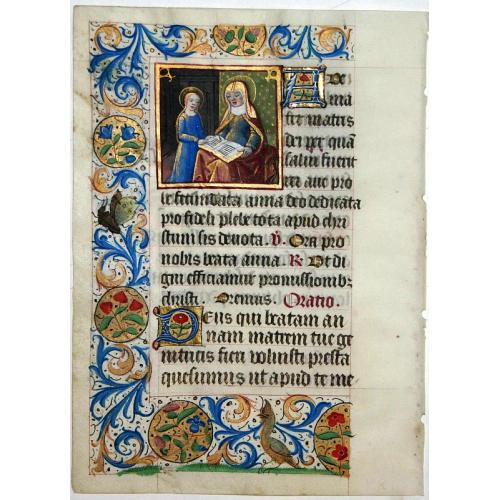 A De
ma
ter matris
dei per quã
salus fuerit
ter aue pro
le fecundata anna deo dedicata
pro fideli plebe tota apud chri
stum sis deuota. V. Ora pro
nobis beata anna. R. Ut di
gni efficiamur promissionibꝫ
christi. Oremus. Oratio.
Deus qui beatam an
nam matrem tue ge
nitricis fieri voluisti presta
quesumus ut apud te me